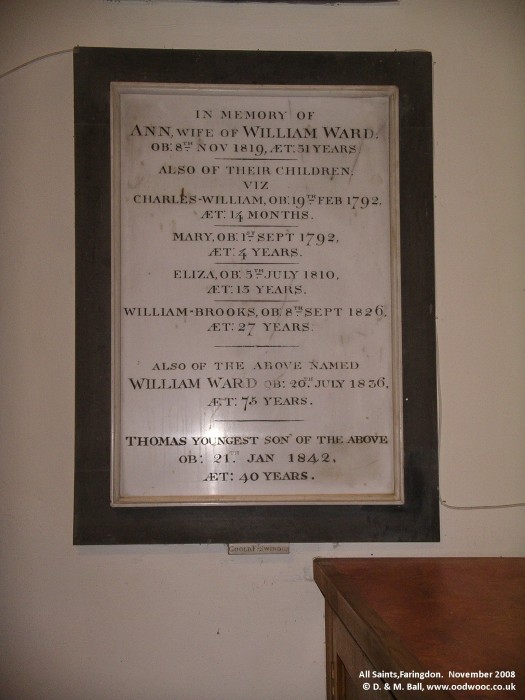 IN MEMORY OF
ANN, WIFE OF WILLIAM WARD:
OB: 8TH NOV 1819, ÆT: 51 YEARS.
ALSO OF THEIR CHILDREN;
VIZ
CHARLES-WILLIAM, OB: 19TH FEB 1792,
ÆT: 14 MONTHS.
MARY, OB: 1ST SEPT 1792,
ÆT: 4 YEARS.
ELIZA, OB: 5TH JULY 1810,
ÆT: 15 YEARS.
WILLIAM-BROOKS, OB: 8TH SEPT 1826,
ÆT: 27 YEARS.
ALSO OF THE ABOVE NAMED
WILLIAM WARD OB: 20TH JULY 1836,
ÆT: 75 YEARS.
THOMAS YOUNGEST SON OF THE ABOVE
OB: 21ST JAN 1842,
ÆT: 40 YEARS.
All Saints,Faringdon. November 2008
© D. & M. Ball, www.oodwooc.co.uk